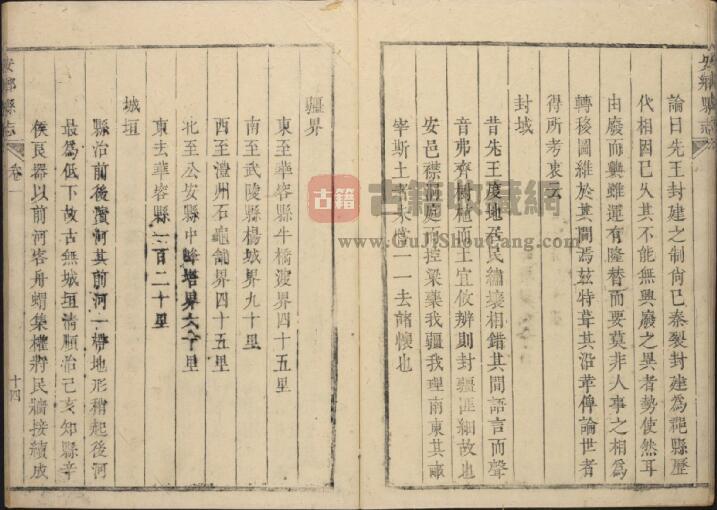 安鄉縣志
論曰先王封建之制尚已秦裂封建為郡縣歷
代相因已久其不能無興廢之異者勢使然耳
由廢而興雖運有隆替而要莫非人事之相為
轉移圖維於其間焉茲特葺其沿革俾論世者
得所考衷云
封域
昔先王度地居民繡壤相錯其間語言而聲
音弗齊樹植而土宜攸辨則封疆匪細故也
安邑襟洞庭而控梁棗我疆我理南東其畝
宰斯土者未嘗一一去諸懷也
疆界
東至華容縣牛橋渡界四十五里
南至武陵縣楊城界九十里
西至澧州石龜鋪界四十五里
北至公安縣中峰塔界六十里
東去華容縣一百二十里
城垣
縣治前後濱河其前河一帶地形稍起後河
最為低下故古無城垣清順治己亥知縣辛
侯良器以前河客舟蝟集權將民牆接續成
安鄉縣志
卷一
十四
古籍
古籍收藏網
www.GuJiShouCang.com